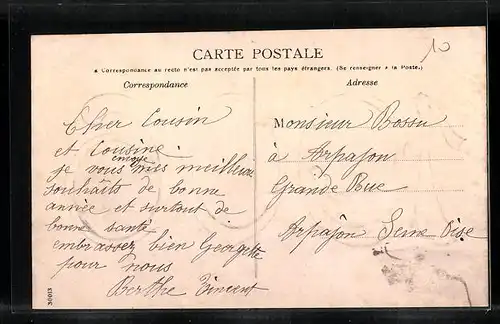 CARTE POSTALE
La Correspondance au recto n'est pas acceptée par tous les pays étrangers. (Se renseigner à la Poste.)
Correspondance
Adresse
10
Cher Cousin
et Cousine.
envoye
je vous mes meilleurs
souhaits de bonne
année et surtout de
bonne santé
embrassez bien Georgette
pour nous
Berthe Vincent
Monsieur Bossu
à Arpajon
Grande Rue
Arpajon Seine Oise
30013